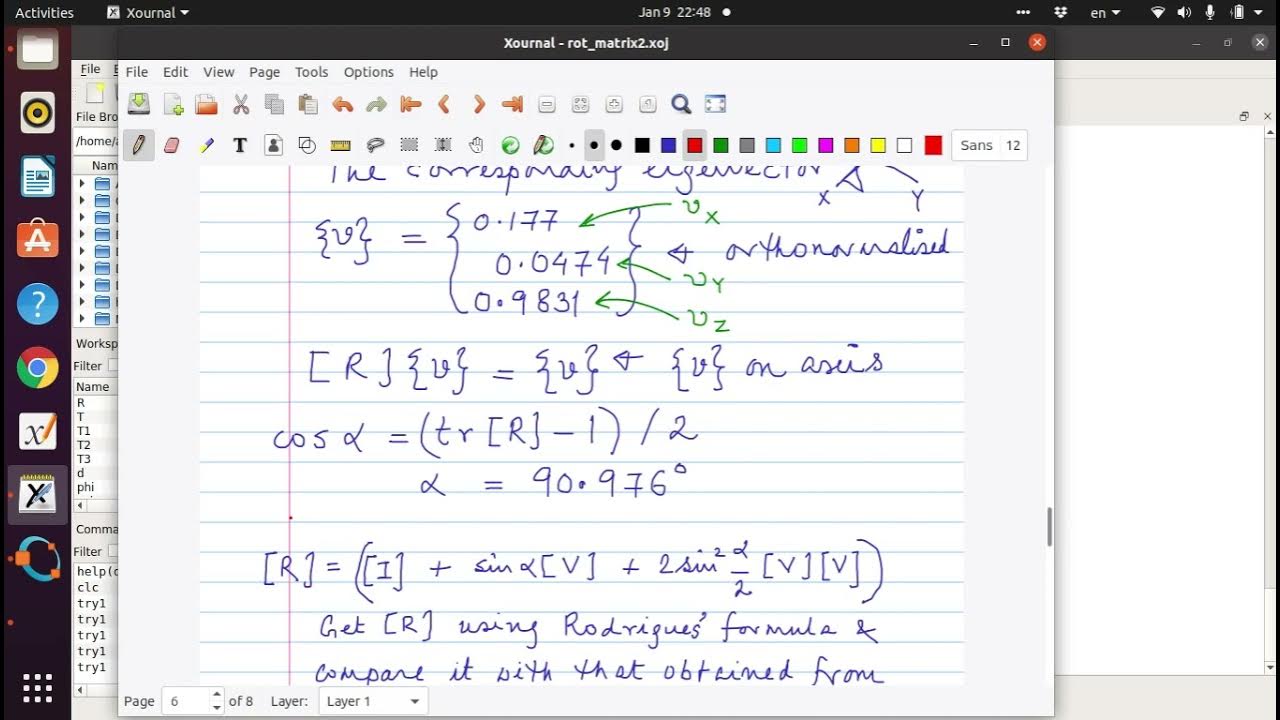 Activities Xournal Jan 9 22:48 en
Xournal - rot_matrix2.xoj
File
File Edit View Page Tools Options Help
File Bro
/home/a
Sans 12
Nam
Worksp
Filter
Name
R
T
T1
T2
T3
d
phi
Comma
Filter
help(d
clc
try1
try1
try1
try1
try1
The corresponding eigenvector X Y
{v} = { 0.177 0.0474 0.9831 } ← orthonormalised
v_X
v_Y
v_Z
[R]{v} = {v} ← {v} on axis
cos α = (tr[R] - 1) / 2
α = 90.976°
[R] = ([I] + sin α [V] + 2 sin² α/2 [V][V])
Get [R] using Rodrigues' formula &
compare it with that obtained from
Page 6 of 8 Layer: Layer 1